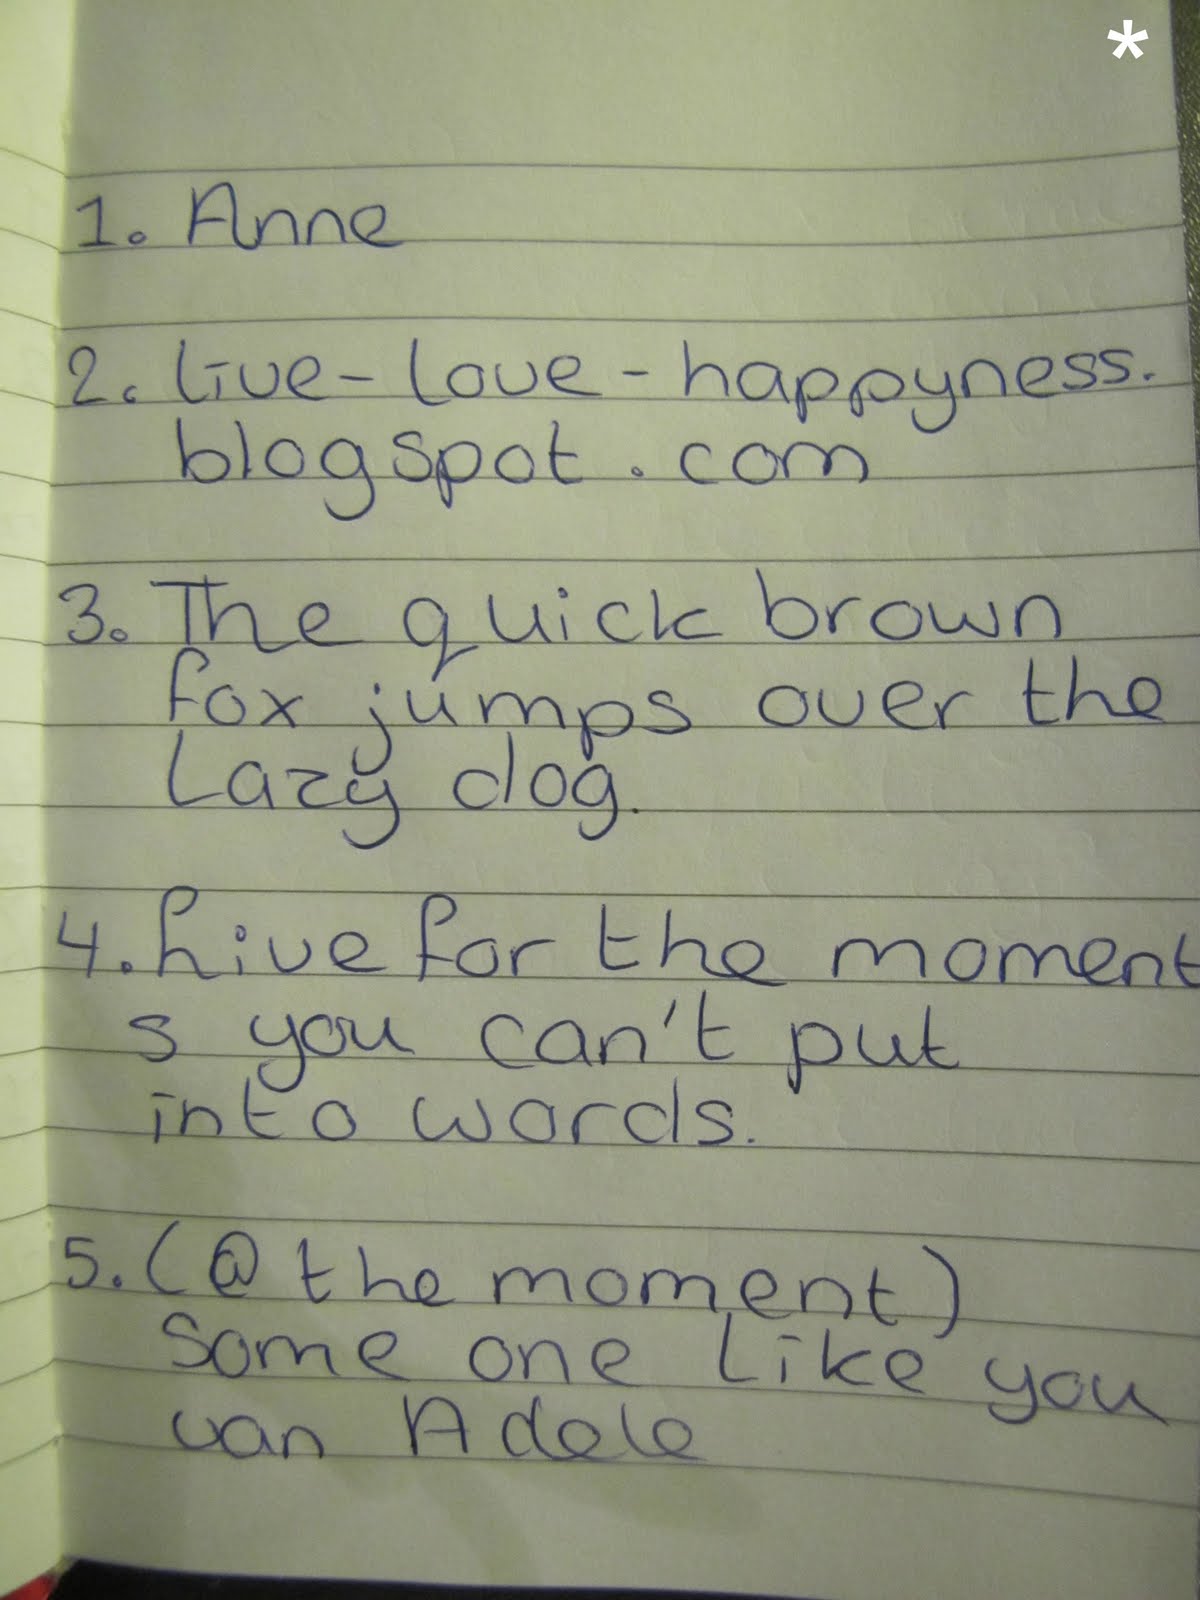 *
1. Anne
2. live-love-happyness.
blogspot.com
3. The quick brown
fox jumps over the
Lazy dog.
4. Live for the moment
s you can't put
into words.
5. (@ the moment)
Some one like you
van Adele